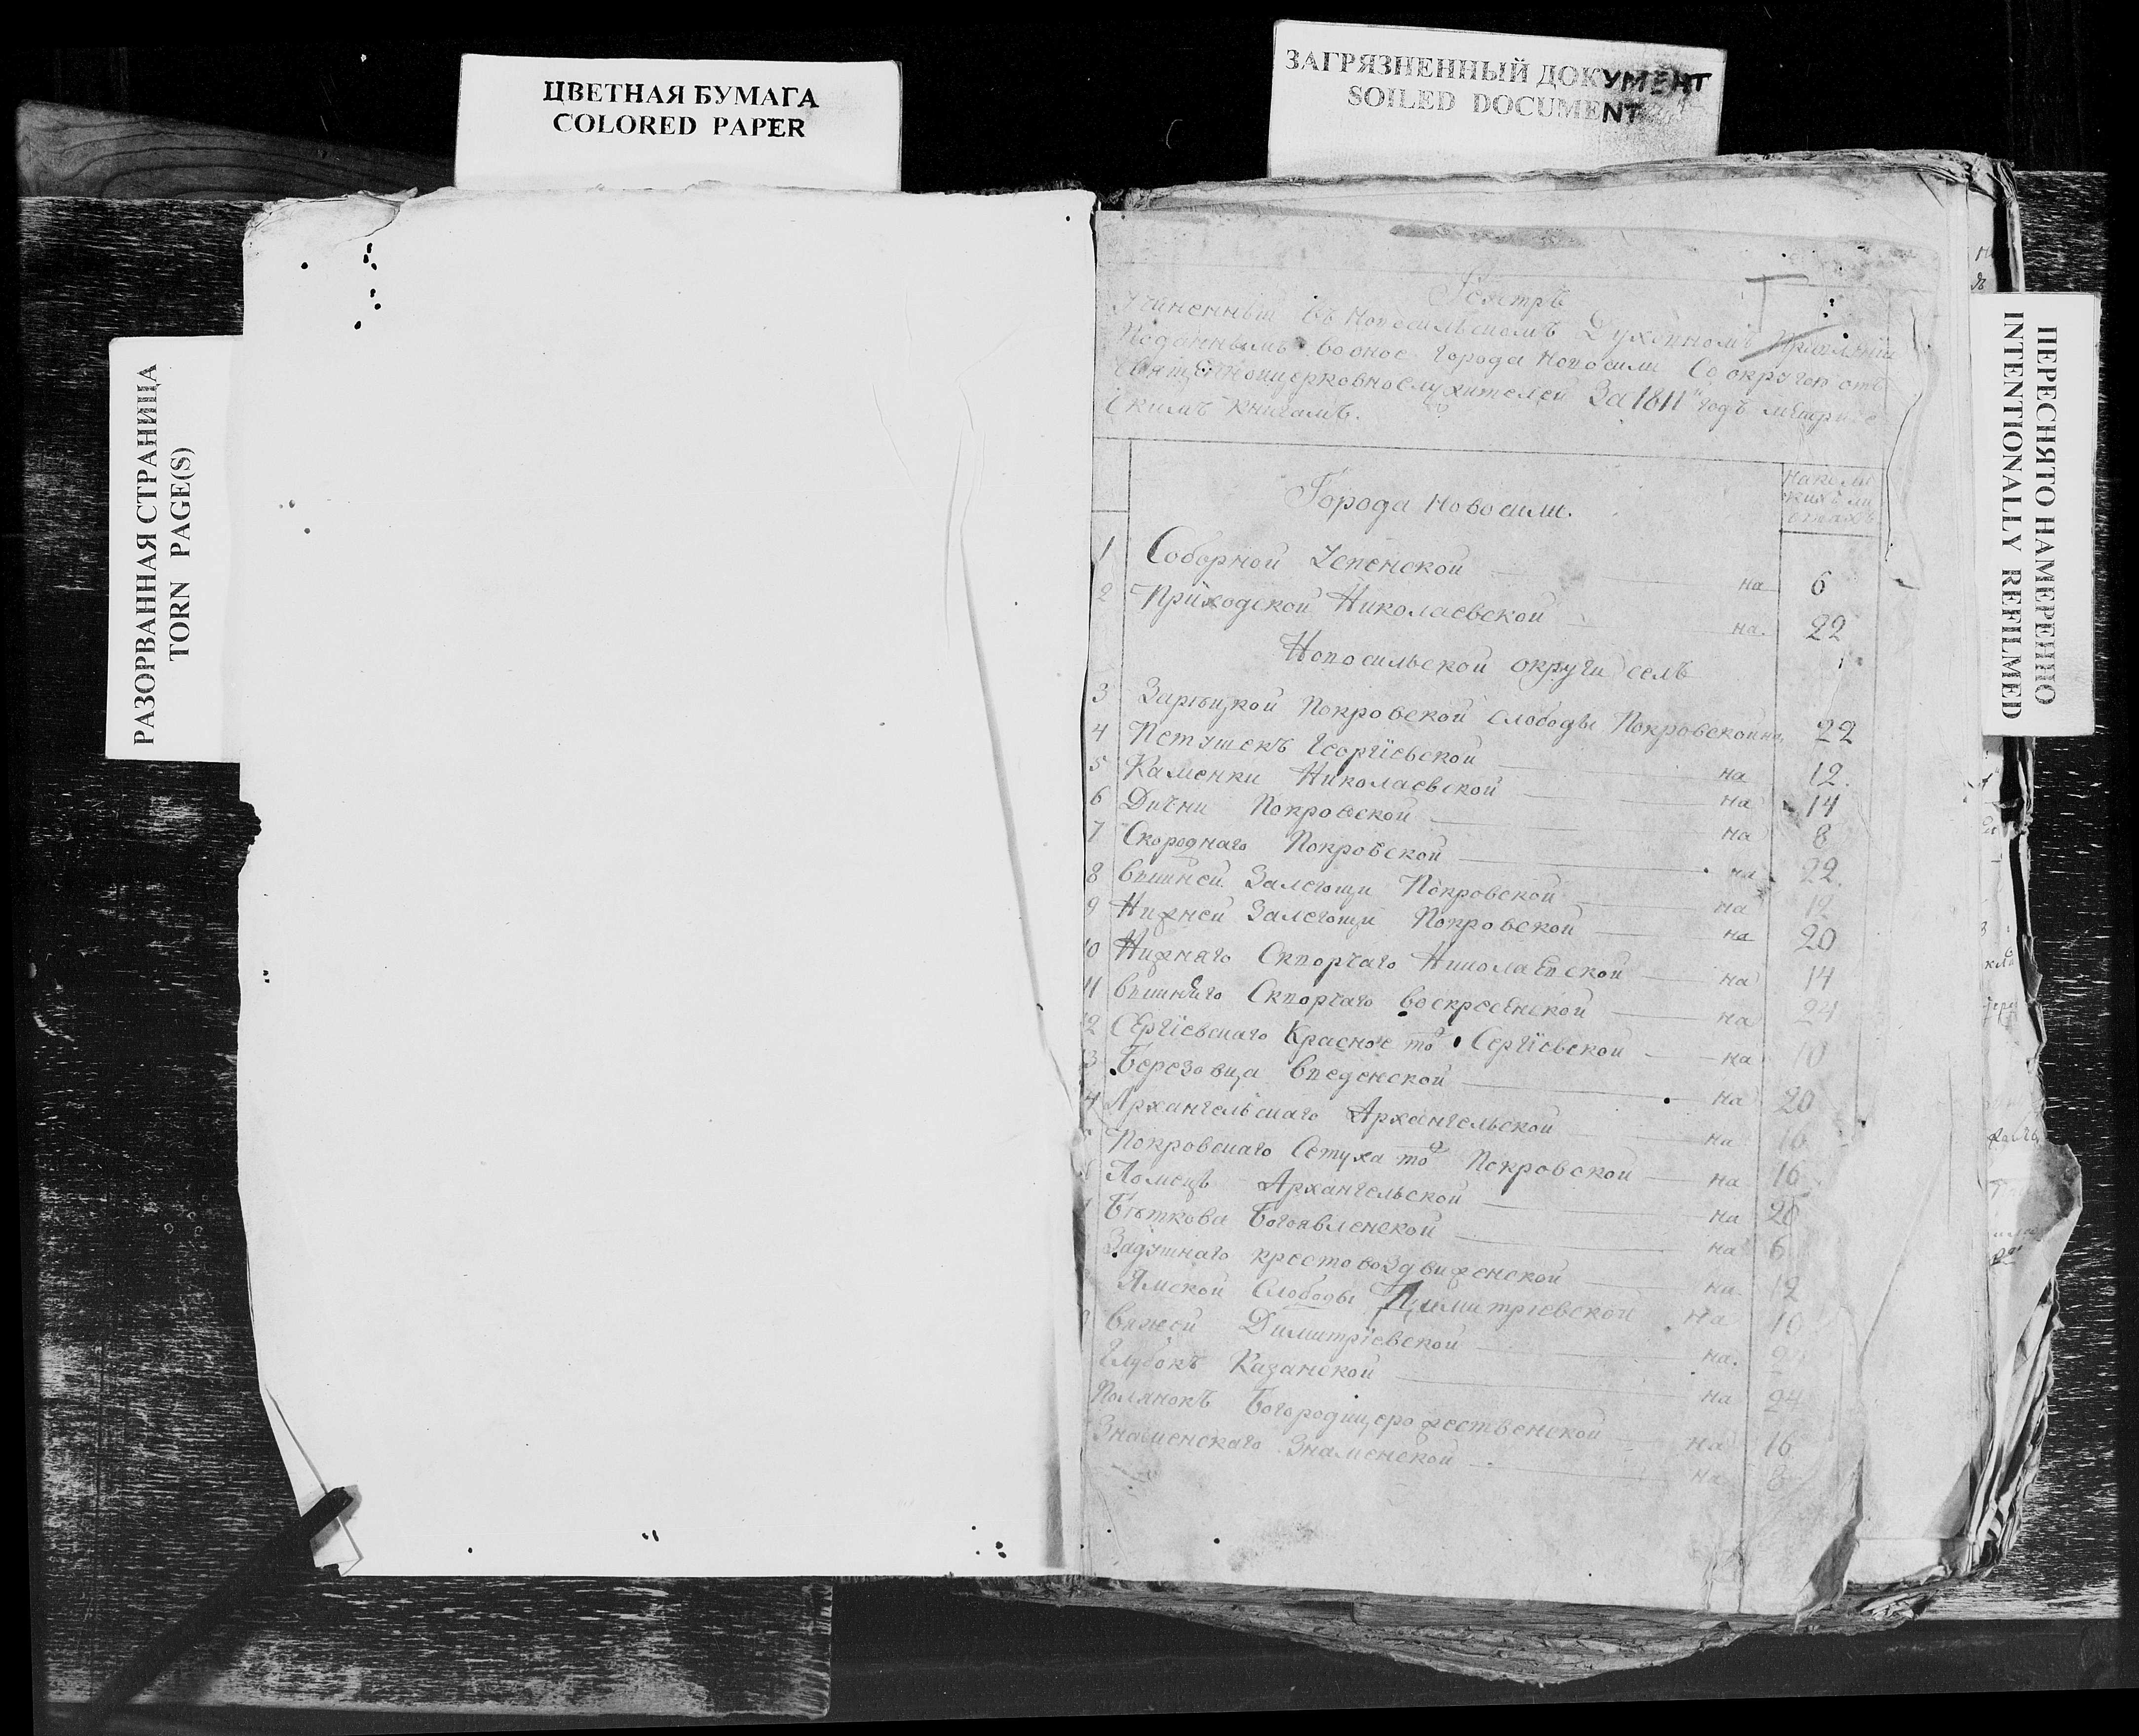 ЦВЕТНАЯ БУМАГА
COLORED PAPER
ЗАГРЯЗНЕННЫЙ ДОКУМЕНТ
SOILED DOCUMENT
РАЗОРВАННАЯ СТРАНИЦА
TORN PAGE(S)
ПЕРЕСНЯТО НАМЕРЕННО
INTENTIONALLY REFILMED
Реэстръ
Учиненный въ Новосильскомъ Духовномъ Правленіи
Поданнымъ вооное города Новосили Со округою отъ
Священноцерковнослужителей За 1811й годъ метриче
скимъ Книгамъ.
Города Новосили.
1 Соборной Успенской на 6
2 Приходской Николаевской на. 22
Новосильской округи селъ
3 Зарѣцкой Покровской слободы Покровской на 22
4 Петушекъ Георгіевьской на 12.
5 Каменки Николаевской на 14
6 Дични Покровской на 8
7 Скороднаго Покровской на 22.
8 Вышней Залегощи Покровской на 12
9 Нижней Залегощи Покровской на 20
10 Нижняго Скворчаго Николаевской на 14
11 Вышняго Скворчаго Воскресенской на 24
12 Сергіевскаго Красное то Сергіевской на 10
13 Березовца Введенской на 20
14 Архангельскаго Архангельской на
Покровскаго Сетуха то Покровской на 16
Ломецъ Архангельской на 20
Бѣткова Богоявленской на 6
Задушнаго крестовоздвиженской на 12
Ямской Слободы Димитріевской на 10
Вяжей Димитріевской на.
Глубокъ Казанской на 24
Полянокъ Богородицерожественской на 16
Знаменскаго Знаменской на 8